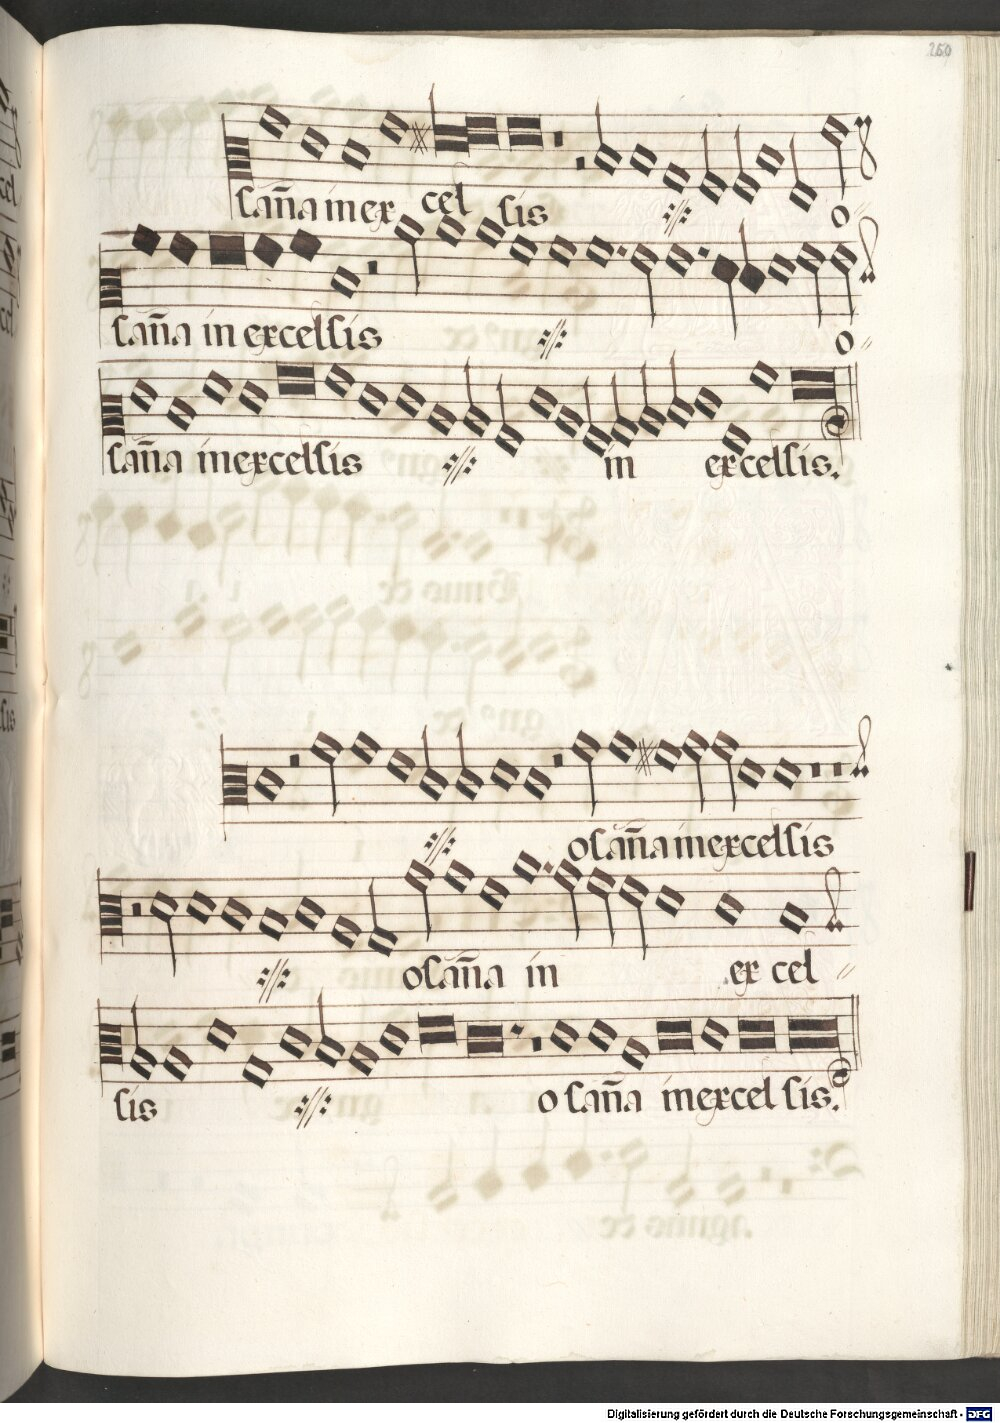 260
sañña in ex cel sis o
sañña in excelsis o
sañña in excelsis in excelsis.
osañña in excelsis
osañña in ex cel
sis o sañña in excel sis.
Digitalisierung gefördert durch die Deutsche Forschungsgemeinschaft - DFG